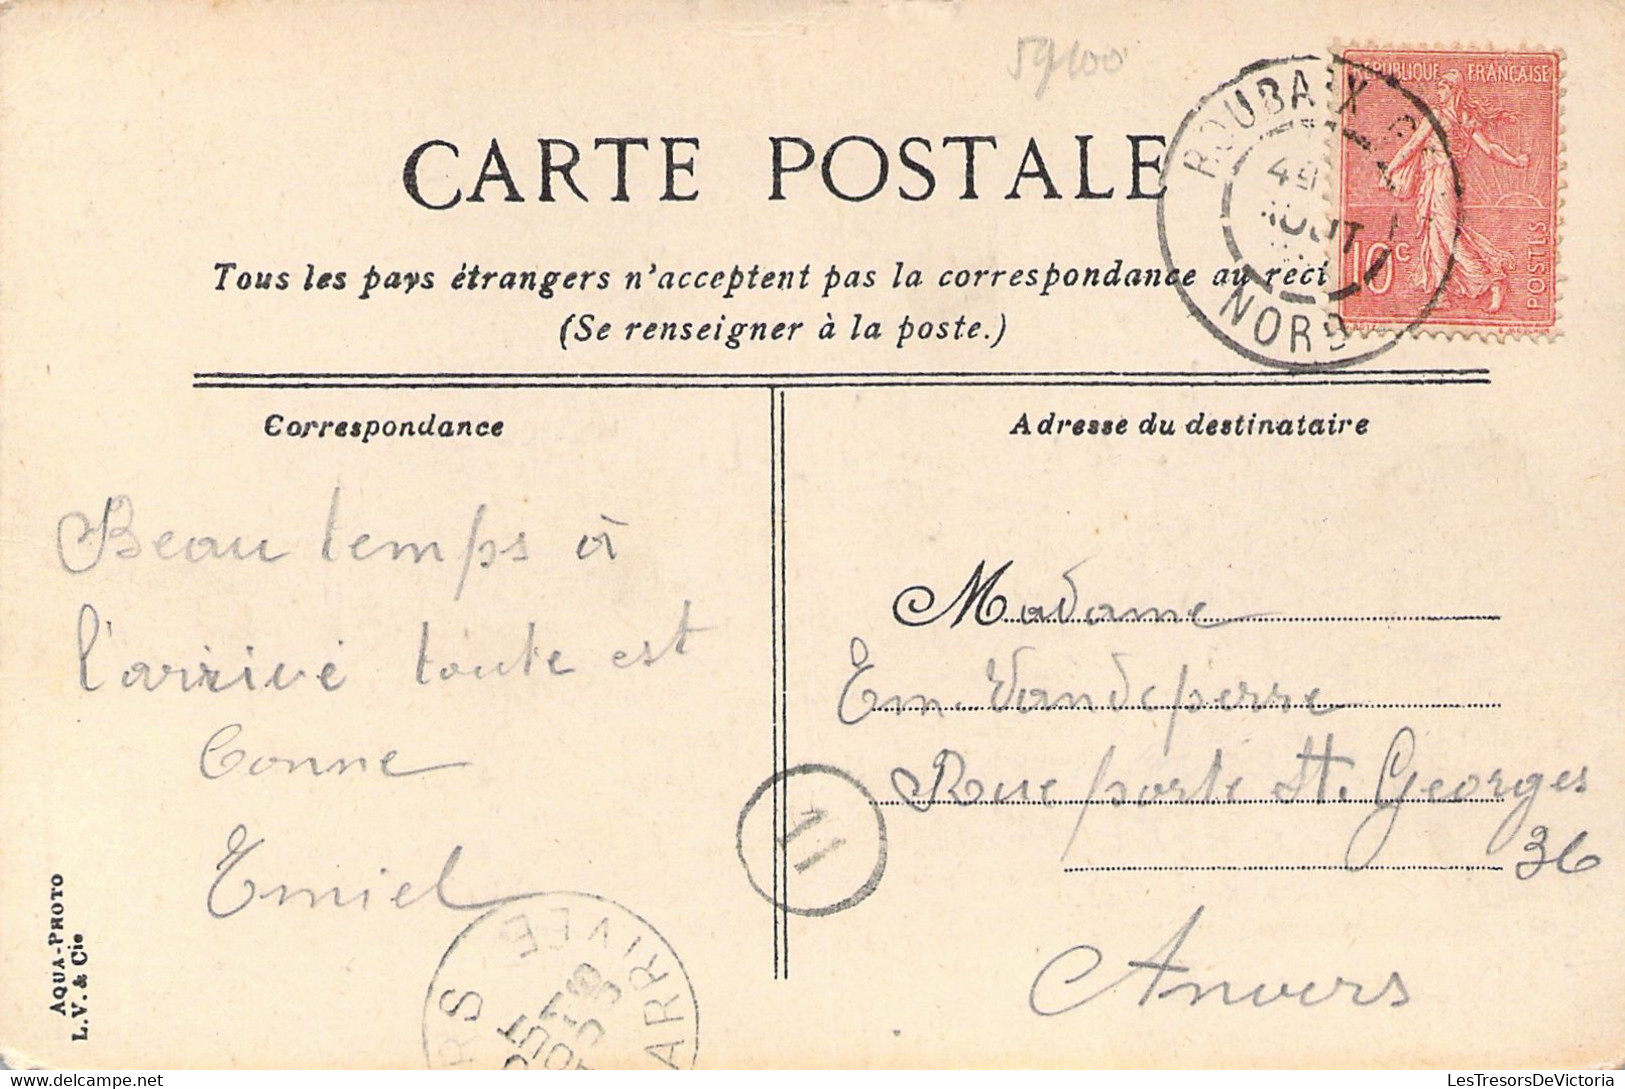 59100
CARTE POSTALE
RÉPUBLIQUE FRANÇAISE
10c
POSTES
ROUBAIX
AOUT
NORD
Tous les pays étrangers n'acceptent pas la correspondance au rect
(Se renseigner à la poste.)
Correspondance
Adresse du destinataire
Beau temps à
l'arrivé toute est
bonne
Emiel
Madame
Em. Vandeperre
Rue porte St. Georges
36
Anvers
11
ARRIVÉE
AOUT
AQUA-PHOTO
L.V. & Cie
LesTresorsDeVictoria